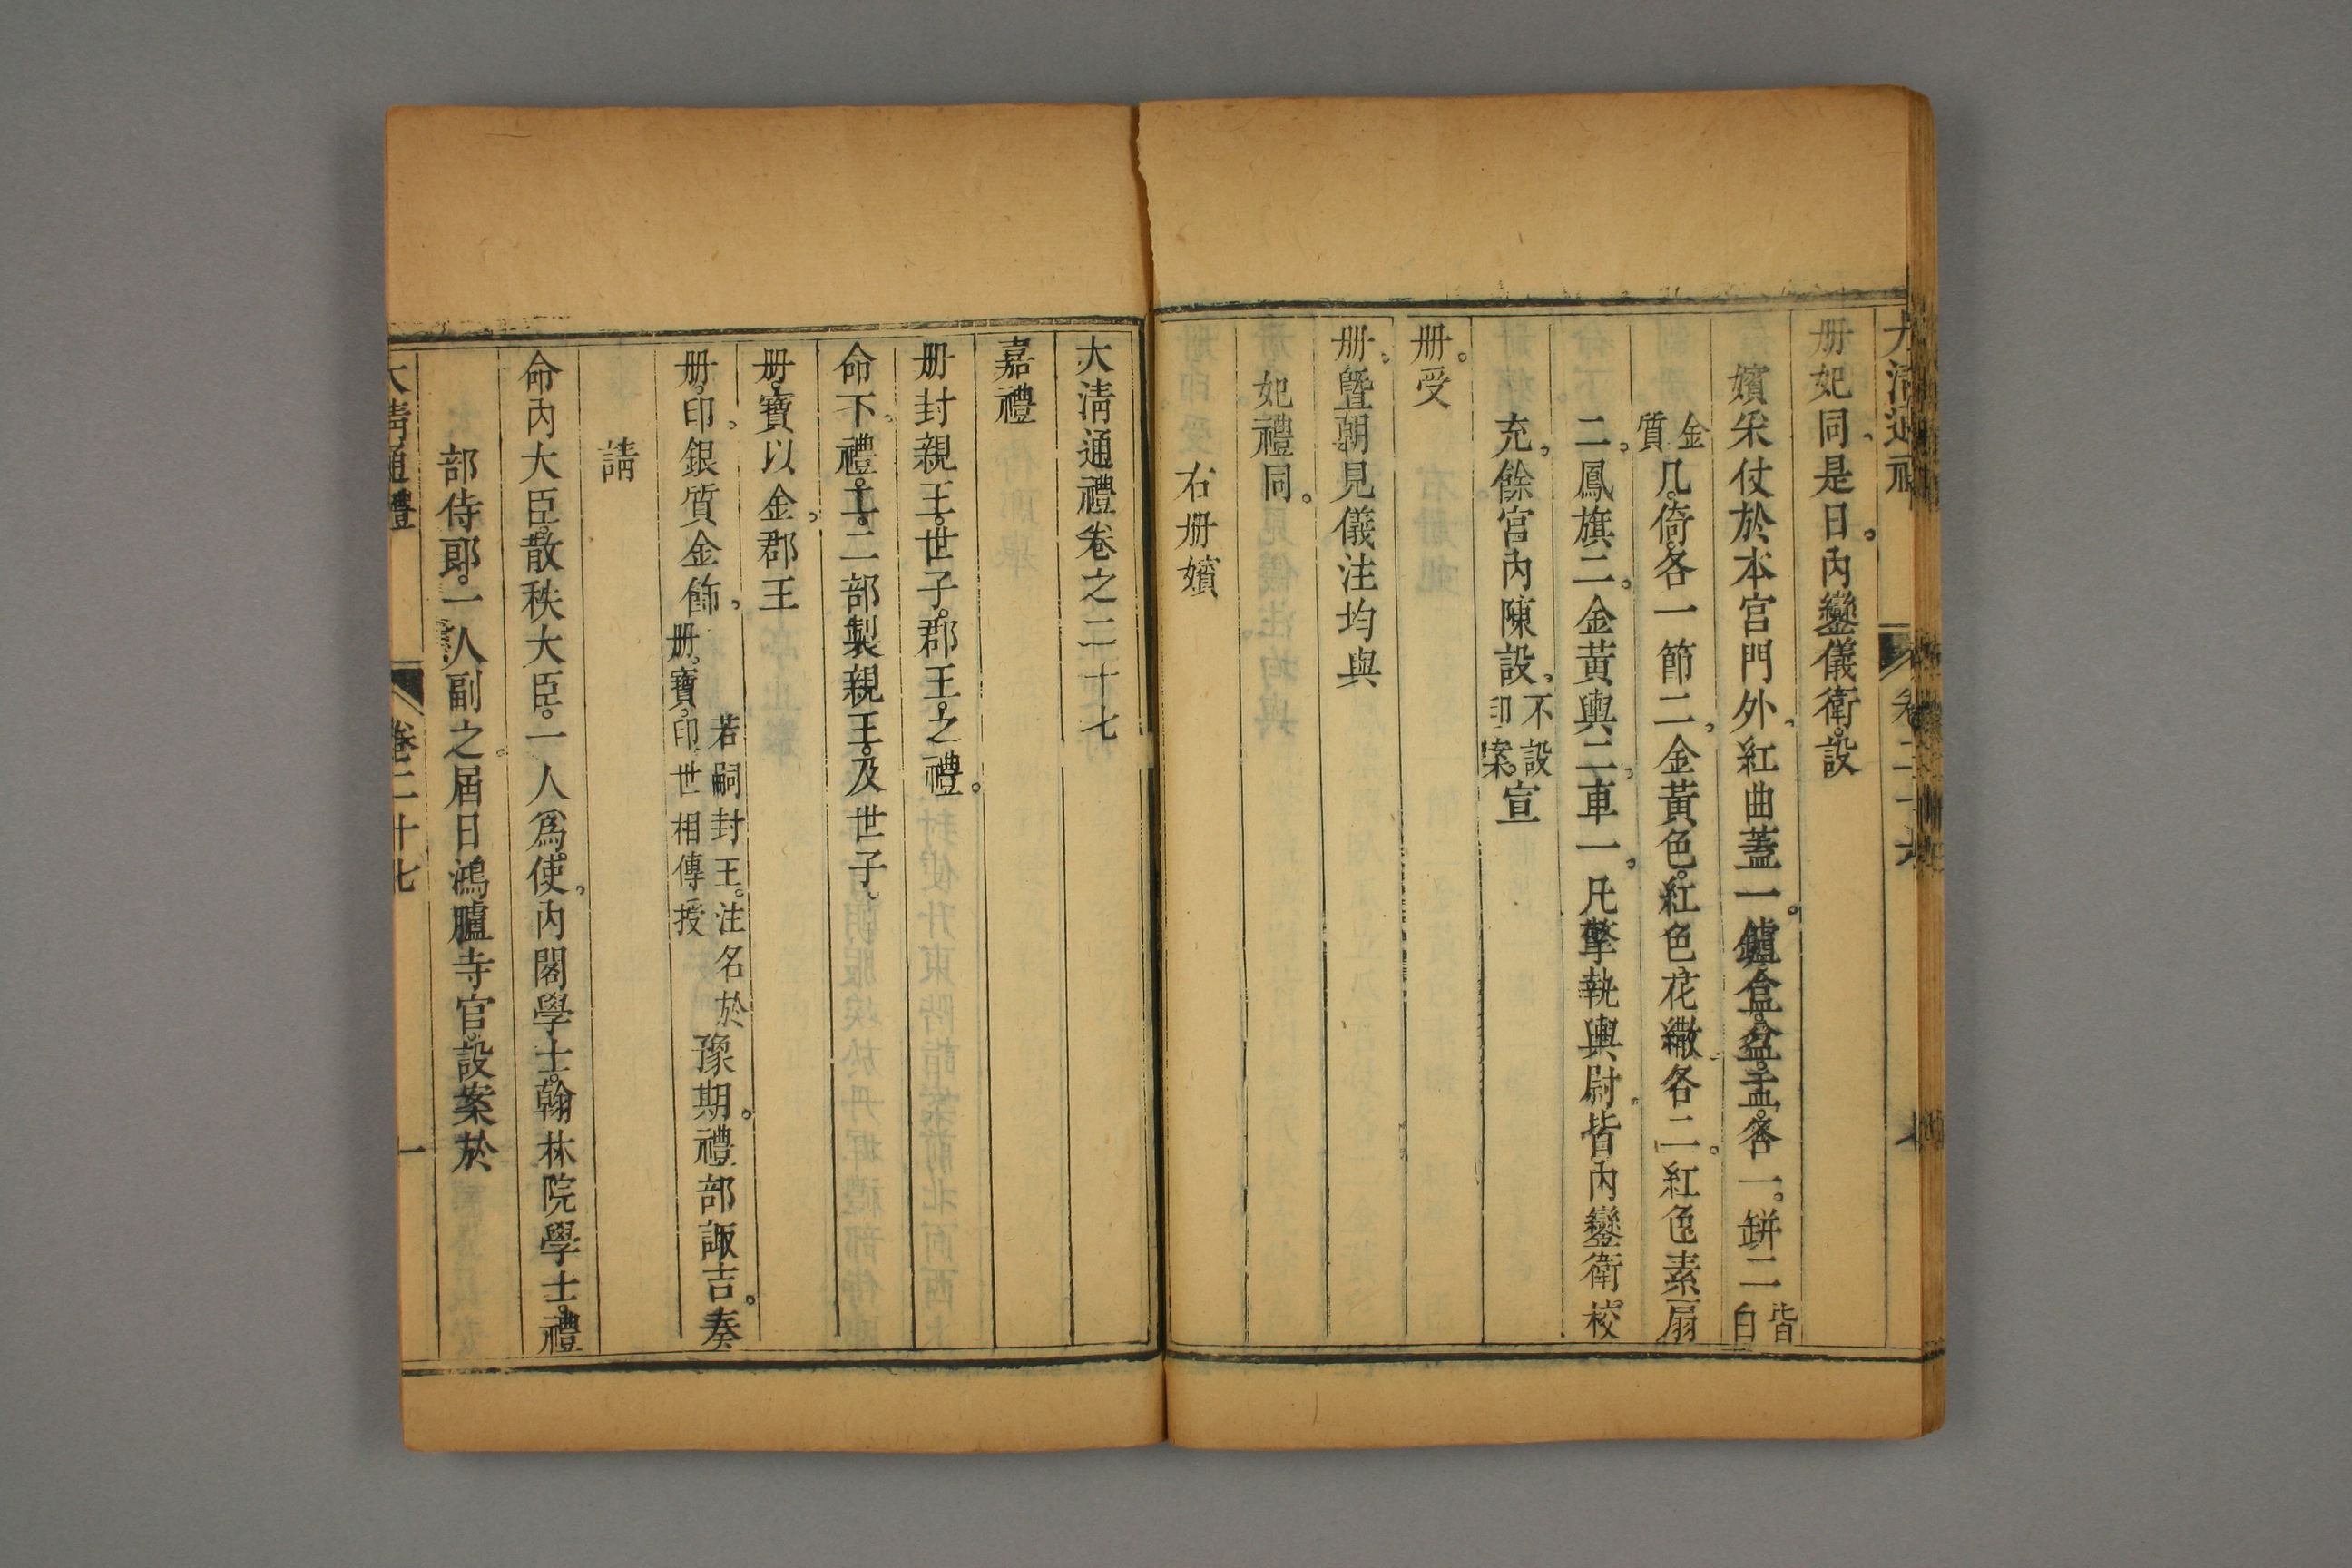 冊妃同是日。內鑾儀衛。設
嬪采仗於本宮門外。紅曲蓋一。鑪。盒。盆。盂。各一。缾二 皆白
金質 几。倚。各一節二。金黃色。紅色花繖。各二。紅色素扇
二。鳳旗二。金黃輿二。車一。凡擎執輿尉。皆內鑾衛校
充。餘宮內陳設。 不設印案。 宣
冊。受
冊。曁朝見儀注均與
妃禮同。
右冊嬪
大淸通禮卷之二十七
嘉禮
冊封親王。世子。郡王。之禮。
命下。禮。工。二部製親王。及世子。
冊。寶以金。郡王
冊。印。銀質金飾。 若嗣封王。注名於冊。寶。印世相傳授 豫期。禮部諏吉。奏
請
命內大臣。散秩大臣。一人爲使。內閣學士。翰林院學士。禮
部侍郎。一人副之。屆日鴻臚寺官。設案於
大淸通禮 卷二十七 一